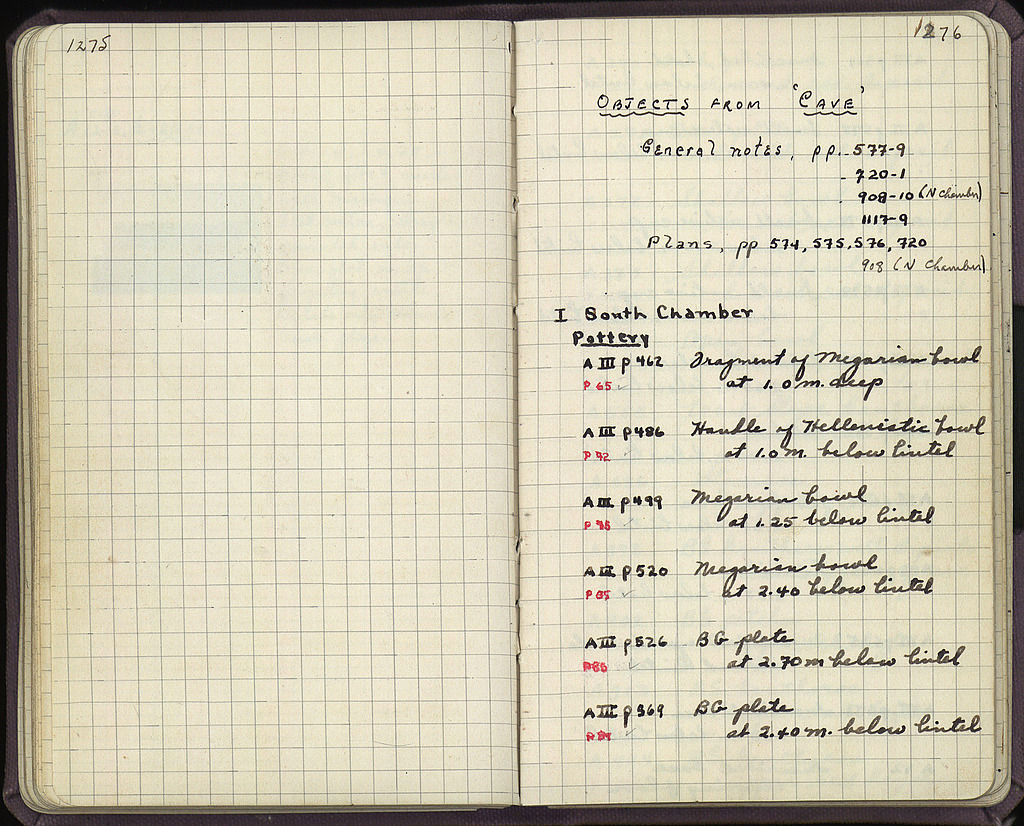 1275
1276
OBJECTS FROM 'CAVE'
General notes, pp. 577-9
720-1
908-10 (N Chamber)
1117-9
Plans, pp 574, 575, 576, 720
908 (N Chamber)
I South Chamber
Pottery
A III p 462 Fragment of Megarian bowl
P 65 at 1.0 m. deep
A III p 486 Handle of Hellenistic bowl
P 92 at 1.0 m. below lintel
A III p 499 Megarian bowl
at 1.25 below lintel
A III p 520 Megarian bowl
P 85 at 2.40 below lintel
A III p 526 BG plate
P 86 at 2.70 m below lintel
A III p 569 BG plate
at 2.40 m. below lintel